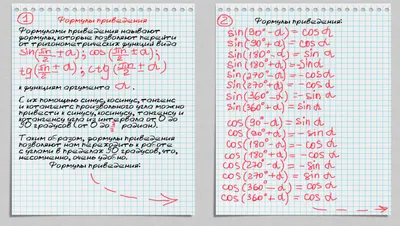 1
Формулы приведения
Формулами приведения называют
формулы, которые позволяют перейти
от тригонометрических функций вида
sin(πn/2 ± α); cos(πn/2 ± α);
tg(πn/2 ± α); ctg(πn/2 ± α)
к функциям аргумента α.
С их помощью синус, косинус, тангенс
и котангенс произвольного угла можно
привести к синусу, косинусу, тангенсу и
котангенсу угла из интервала от 0 до
90 градусов (от 0 до π/2 радиан).
Таким образом, формулы приведения
позволяют нам переходить к работе
с углами в пределах 90 градусов, что,
несомненно, очень удобно.
Формулы приведения:
2
Формулы приведения:
sin(90°-α) = cos α
sin(90°+α) = cos α
sin(180°-α) = sin α
sin(180°+α) = -sin α
sin(270°-α) = -cos α
sin(270°+α) = -cos α
sin(360°-α) = -sin α
sin(360°+α) = sin α
cos(90°-α) = sin α
cos(90°+α) = -sin α
cos(180°-α) = -cos α
cos(180°+α) = -cos α
cos(270°-α) = -sin α
cos(270°+α) = sin α
cos(360°-α) = cos α
cos(360°+α) = cos α